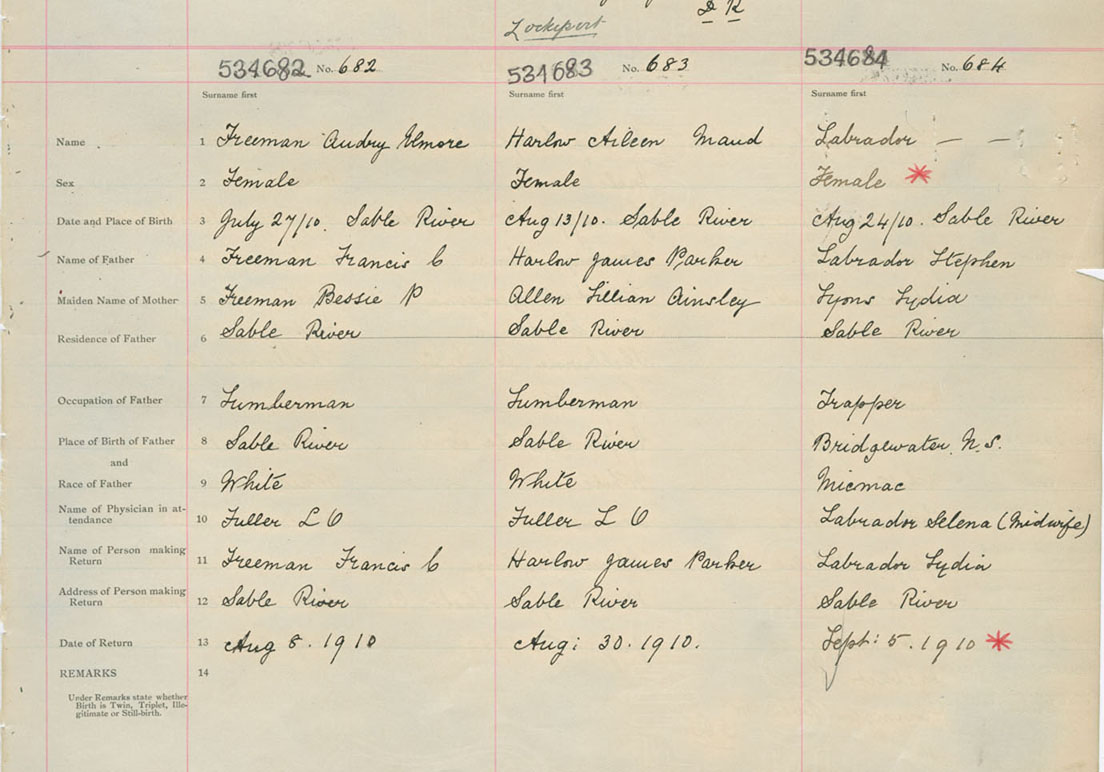 Lockeport
534682 No. 682 534683 No. 683 534684 No. 684
Surname first Surname first Surname first
Name 1 Freeman Audry Elmore Harlow Aileen Maud Labrador — —
Sex 2 Female Female Female *
Date and Place of Birth 3 July 27/10. Sable River Aug 13/10. Sable River Aug 24/10. Sable River
Name of Father 4 Freeman Francis C Harlow James Parker Labrador Stephen
Maiden Name of Mother 5 Freeman Bessie P Allen Lillian Ainsley Lyons Lydia
Residence of Father 6 Sable River Sable River Sable River
Occupation of Father 7 Lumberman Lumberman Trapper
Place of Birth of Father 8 Sable River Sable River Bridgewater, N.S.
and
Race of Father 9 White White Micmac
Name of Physician in at-
tendance 10 Fuller L O Fuller L O Labrador Selena (Midwife)
Name of Person making
Return 11 Freeman Francis C Harlow James Parker Labrador Lydia
Address of Person making
Return 12 Sable River Sable River Sable River
Date of Return 13 Aug 8. 1910 Aug: 30. 1910. Sept: 5. 1910 *
REMARKS 14
Under Remarks state whether
Birth is Twin, Triplet, Ille-
gitimate or Still-birth.